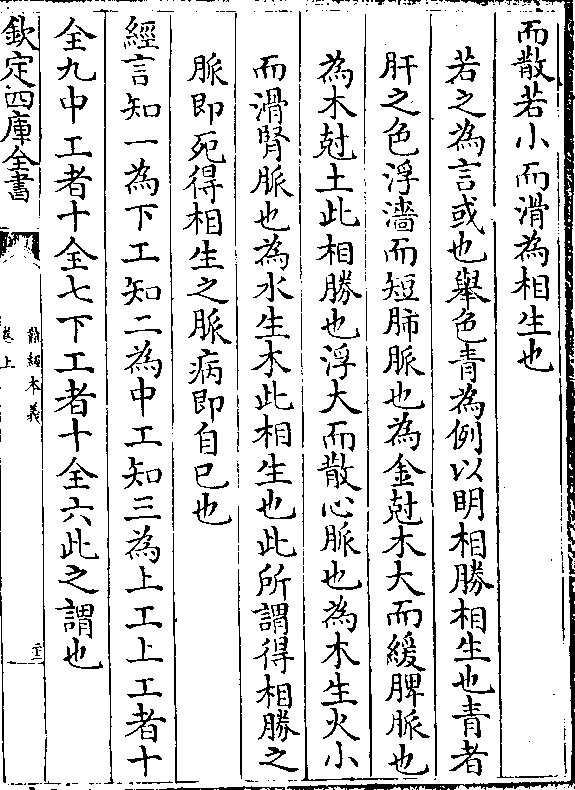 而散若小而滑為相生也
若之為言或也舉色青為例以明相勝相生也青者
肝之色浮濇而短肺脈也為金尅木大而緩脾脈也
為木尅土此相勝也浮大而散心脈也為木生火小
而滑腎脈也為水生木此相生也此所謂得相勝之
脈即死得相生之脈病即自已也
經言知一為下工知二為中工知三為上工上工者十
全九中工者十全七下工者十全六此之謂也
欽定四庫全書
難經本義
卷上